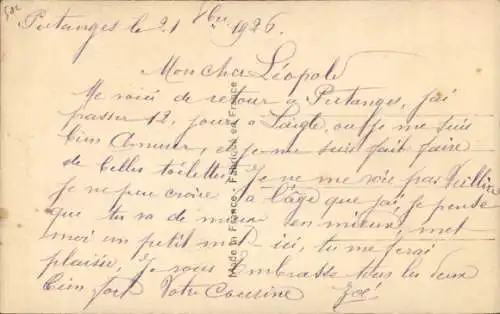 Putanges le 21 8bre 1926.
Mon cher Léopold
Me voici de retour a Putanges, j'ai
passer 12, jours a Laigle, ou je me suis
bien Amuser, et je me suis fait faire
de belles toilettes. Je ne me voie pas Veillir
je ne peu croire a l'âge que j'ai, je pense
que tu va de mieux en mieux, met
moi un petit mot ici, tu me ferai
plaisir, Je vous Embrasse tous les deux
bien fort Votre Cousine Zoé
Made in France - Fabriqué en France